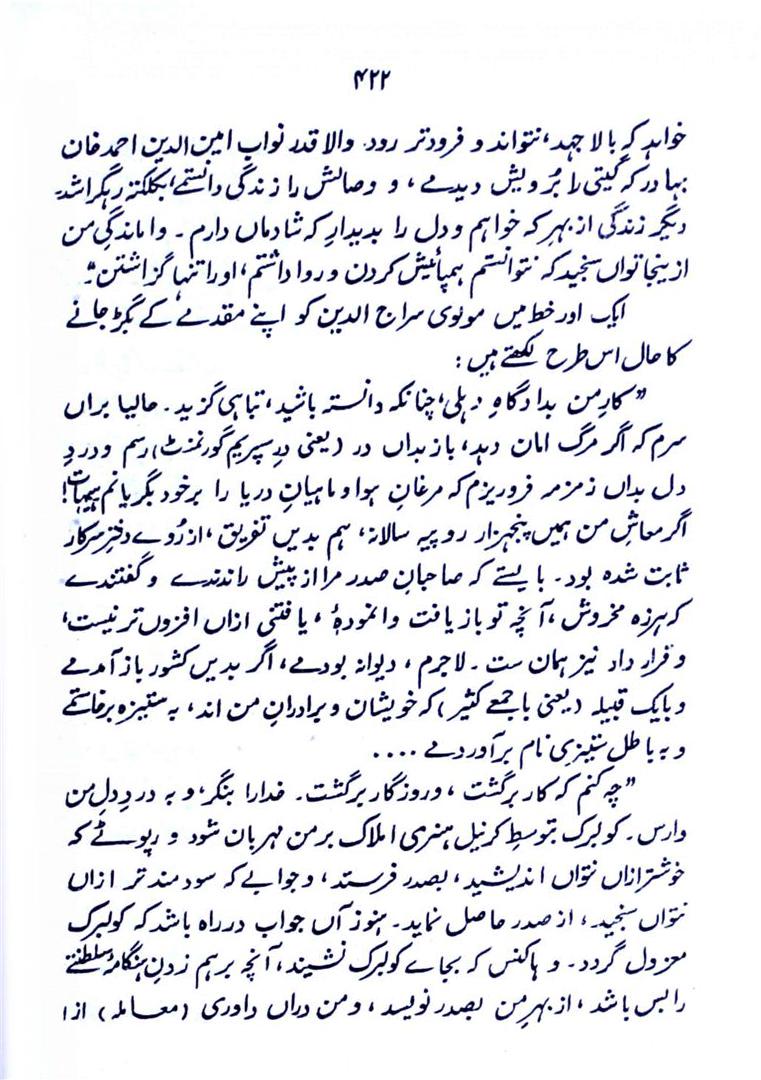 ۴۲۲
خواہد کہ بالا جہد، نتواند و فرود تر رود۔ والا قدر نواب امین الدین احمد خان
بہادر کہ گیتی را بُرویش دیدمے، و وصالش را زندگی دانستمے، بکلکتہ رہگرا شد۔
دیگر زندگی از بہرِ کہ خواہم و دل را بدیدارِ کہ شادماں دارم۔ واماندگیِ من
ازینجا تواں سنجید کہ نتوانستم ہمپائیش کردن و روا داشتم، اورا تنہا گزاشتن"۔
ایک اور خط میں مولوی سراج الدین کو اپنے مقدمے کے بگڑ جانے
کا حال اس طرح لکھتے ہیں:
"کارِ من بدادگاہِ دہلی، چنانکہ دانستہ باشید، تباہی گزید۔ حالیا براں
سرم کہ اگر مرگ اماں دہد، باز بداں در (یعنی درِ سپریم گورنمنٹ) رسم و دردِ
دل بداں زمزمہ فرو ریزم کہ مرغانِ ہوا و ماہیانِ دریا را بر خود بگریانم ہیہات!
اگر معاشِ من ہمیں پنجہزار روپیہ سالانہ، ہم بدیں تفریق، از رُوے دفترِ سرکار
ثابت شدہ بود۔ بایستے کہ صاحبانِ صدر مرا از پیش راندندے و گفتندے
کہ ہرزہ مخروش، آنچہ تو بازیافت وا نمودۂ، یافتنی ازاں افزوں تر نیست،
و قرار داد نیز ہمان ست۔ لاجرم، دیوانہ بودمے، اگر بدیں کشور باز آمدمے
و بایک قبیلہ (یعنی با جمعے کثیر) کہ خویشان و برادرانِ من اند، بہ ستیزہ برخاستمے
و بہ باطل ستیزی نام برآوردمے ....
"چہ کنم کہ کار برگشت، و روزگار برگشت۔ خدارا بنگر، و بہ دردِ دلِ من
وارس۔ کولبرک بتوسطِ کرنیل ہنری املاک بر من مہربان شود و رپوٹے کہ
خوشتر ازاں نتواں اندیشید، بصدر فرستد، و جوابے کہ سودمند تر ازاں
نتواں سنجید، از صدر حاصل نماید۔ ہنوز آں جواب در راہ باشد کہ کولبرک
معزول گردد۔ و ہاکنس کہ بجاے کولبرک نشیند، آنچہ برہم زدنِ ہنگامۂ سلطنتے
را بس باشد، از بہرِ من بصدر نویسد، و من دراں داوری (معاملہ) از ا